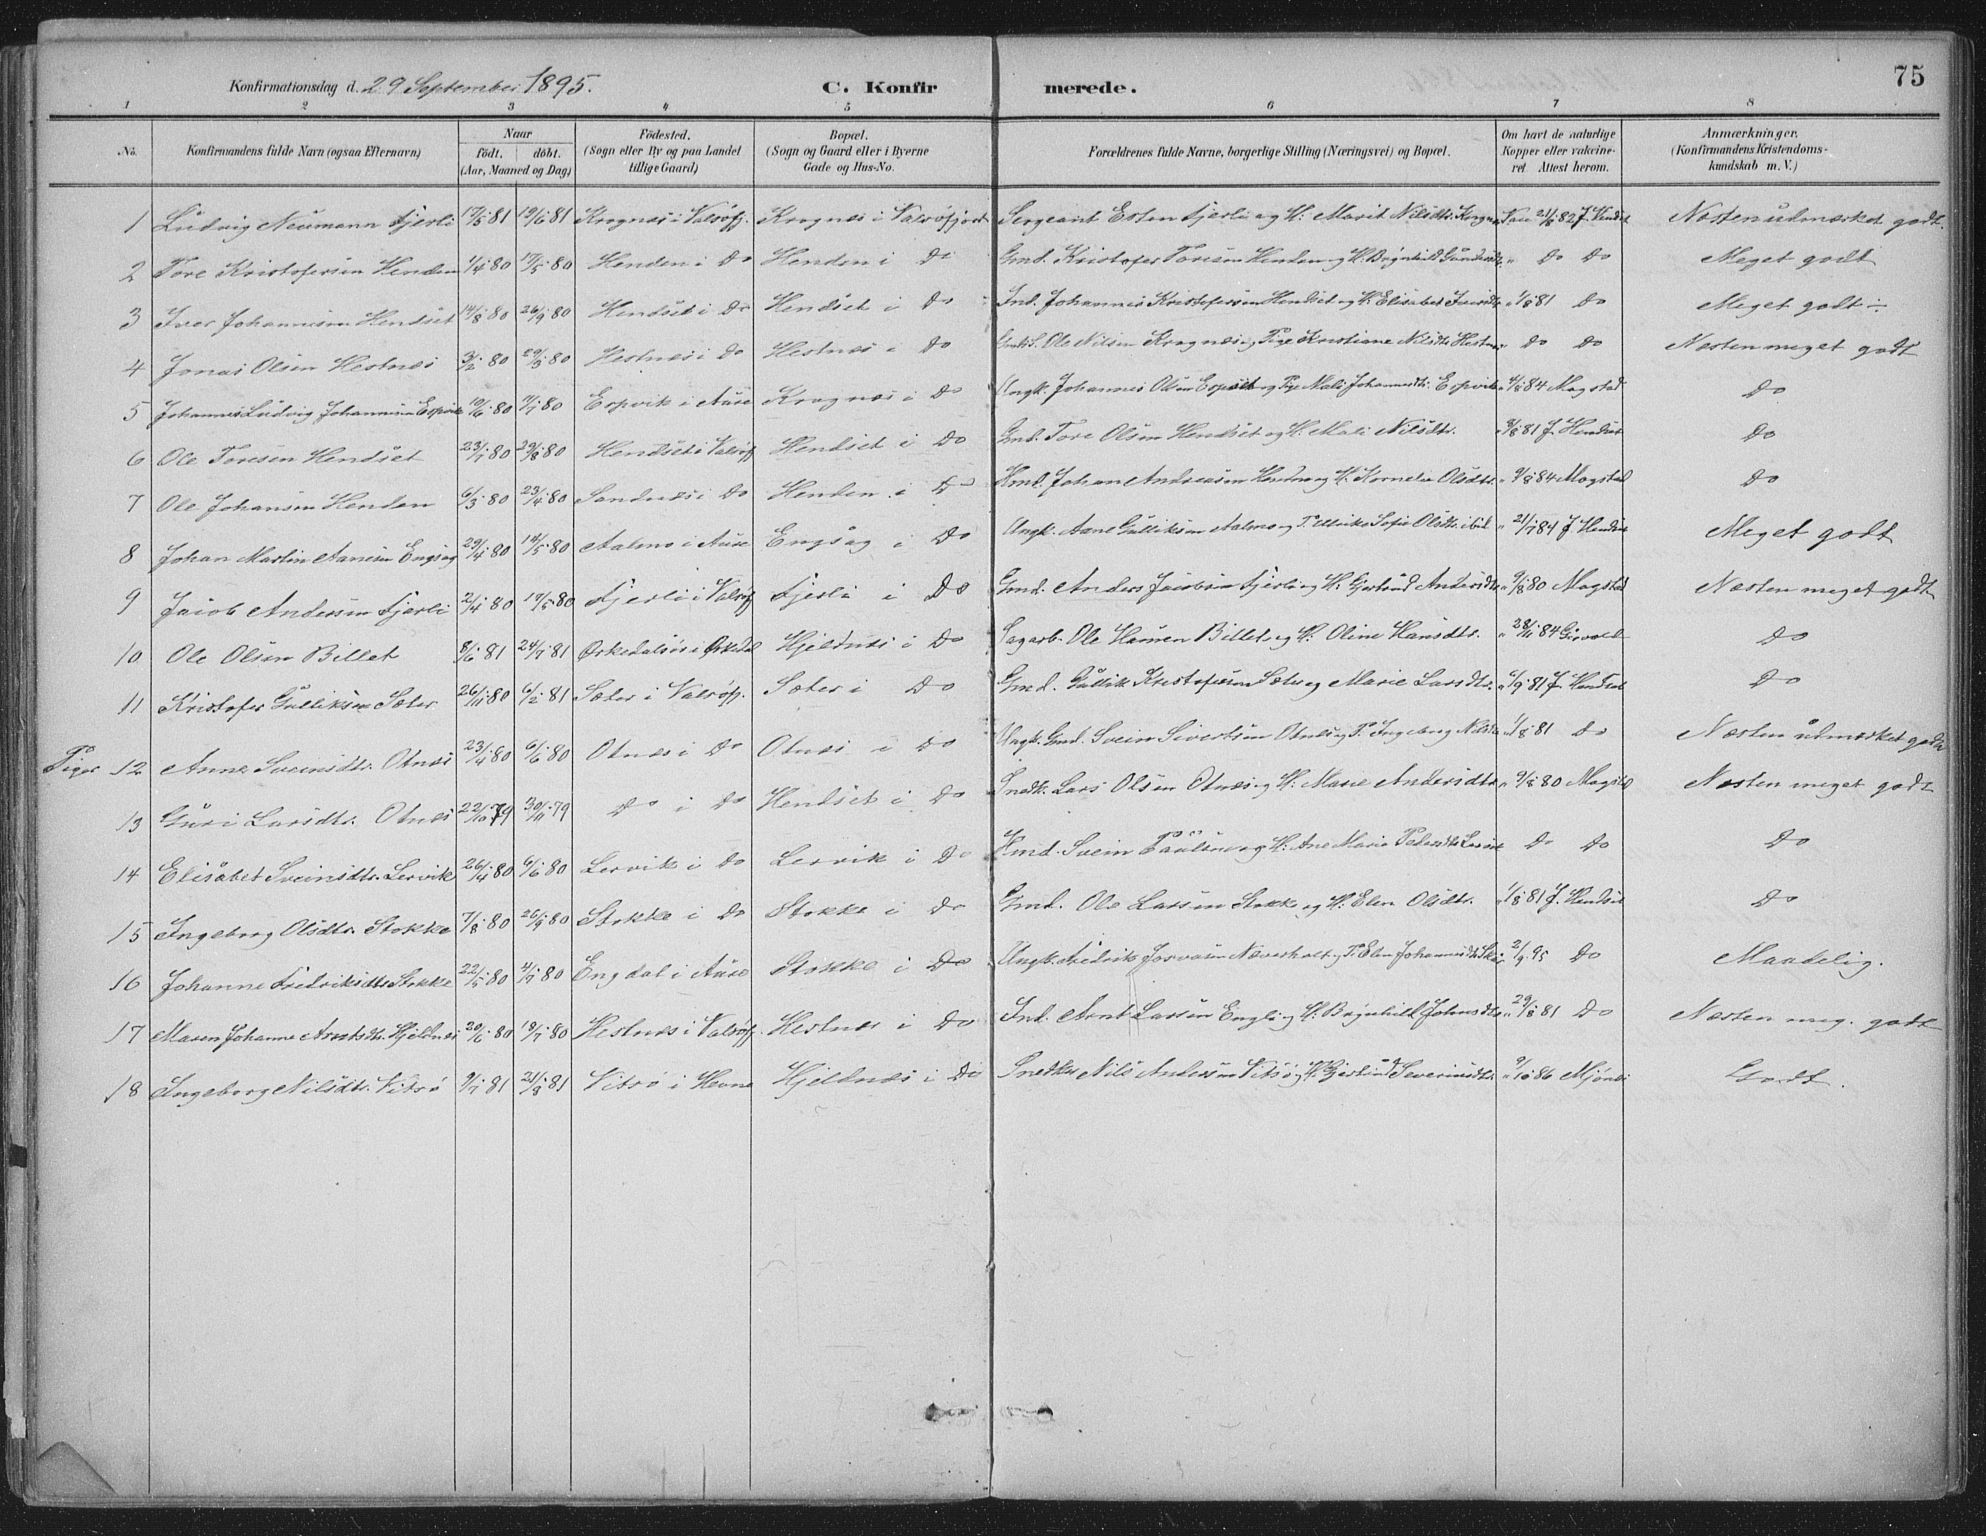 Konfirmationsdag d. 29 September 1895. C. Konfirmerede. 75
1 2 3 4 5 6 7 8
No. Konfirmandens fulde Navn (ogsaa Efternavn) Naar födt. döbt. (Aar, Maaned og Dag) Födested. (Sogn eller By og paa Landet tillige Gaard) Bopæl. (Sogn og Gaard eller i Byerne Gade og Hus-No. Forældrenes fulde Navne, borgerlige Stilling (Næringsvei) og Bopæl. Om havt de naturlige Kopper eller vakcineret. Attest herom. Anmærkninger. (Konfirmandens Kristendomskundskab m. V.)
1 Ludvig Neumann Fjerli 17/5 81 19/6 81 Krognes i Valsöfj. Krognes i Valsöfjord Sergeant Esten Fjerli og H. Marit Nilsdtr. Krognes Vac 21/8 82 J. Hendset Næsten udmærket godt.
2 Tore Kristofersen Henden 1/4 80 17/5 80 Henden i Do Henden i Do Gmd. Kristofer Toresen Henden og H. Brynhild Gundersdtr. " Do Do Meget godt
3 Iver Johannesen Hendset 14/8 80 26/9 80 Hendset i Do Hendset i Do Ind. Johannes Kristofersen Hendset og H. Elisabet Iversdtr. " 1/8 81 Do Meget godt ÷
4 Jonas Olsen Hestnes 3/2 80 29/3 80 Hestnes i Do Hestnes i Do Ole Nilsen Krognes og Pige Kristiane Nilsdtr. Hestnes " Do Do Næsten meget godt
5 Johannes Ludvig Johannesen Espvik 19/6 80 11/7 80 Espvik i Aure Krognes i Do Ungk. Johannes Olsen Espvik og Pige Mali Johannesdtr. Espvik " 9/8 84 Mogstad Do
6 Ole Toresen Hendset 23/7 80 29/8 80 Hendset i Valsöfj Hendset i Do Gmd. Tore Olsen Hendset og H. Mali Nilsdtr. " 3/8 81 J. Hendset Do
7 Ole Johansen Henden 6/3 80 23/4 80 Sandnes i Do Henden i Do Hmd. Johan Andreasen Henden og H. Kornelia Olsdtr. " 9/8 84 Mogstad Do
8 Johan Martin Aanesen Engsög 29/4 80 14/5 80 Aalmo i Aure Engsög i Do Ungk. Aane Gulliksen Aalmo og P. Ulrike Sofie Olsdtr. ibid " 21/7 84 J. Hendset Meget godt
9 Jacob Andersen Fjerli 2/4 80 17/5 80 Fjerli i Valsöfj Fjerli i Do Gmd. Anders Jacobsen Fjerli og H. Gjertrud Andersdtr. " 9/8 80 Mogstad Næsten meget godt
10 Ole Olsen Billet 8/6 81 24/7 81 Örkedalsör i Örkedal Hjeldnes i Do Sagarb. Ole Hansen Billet og H. Oline Hansdtr. " 28/11 84 Do
11 Kristofer Gulliksen Sæter 26/11 80 6/2 81 Sæter i Valsöfj. Sæter i Do Gmd. Gullik Kristofersen Sæter og Marie Larsdtr. " 6/9 81 J. Hendset Do
Piger 12 Anne Sveinsdtr. Otnes 23/4 80 6/6 80 Otnes i Do Otnes i Do Ungk. Gmd. Svein Sivertsen Otnes og P. Ingeborg Nilsdtr. " 1/8 81 Do Næsten udmærket godt
13 Guri Larsdtr. Otnes 22/10 79 30/11 79 Do i Do Hendset i Do Snedk. Lars Olsen Otnes og H. Marie Andersdtr. " 9/8 80 Mogstad Næsten meget godt
14 Elisabet Sveinsdtr. Lervik 26/4 80 6/6 80 Lervik i Do Lervik i Do Hmd. Svein Paulsen og H. Ane Marie Pedersdtr. Lervik Do Do Do
15 Ingeborg Olsdtr. Stokke 7/8 80 26/9 80 Stokke i Do Stokke i Do Gmd. Ole Larsen Stokke og H. Elen Olsdtr. " 1/8 81 J. Hendset Do
16 Johanne Fredriksdtr. Stokke 22/5 80 4/7 80 Engdal i Aure Stokke i Do Ungk. Fredrik Næverholt og P. Elen Johannesdtr. " 2/9 95 Do Maadelig.
17 Maren Johanne Arntsdtr. Hjeldnes 20/6 80 18/7 80 Hestnes i Valsöfj. Hestnes i Do Ind. Arnt Larsen Engli og H. Brynhild Johnsdtr. " 29/8 81 Do Næsten meg. godt
18 Ingeborg Nilsdtr. Vitsö 9/7 81 21/8 81 Vitsö i Hevne Hjeldnes i Do Snedker Nils Andersen Vitsö og H. Gjertrud Severinsdtr. " 9/10 86 Mjönes Godt.